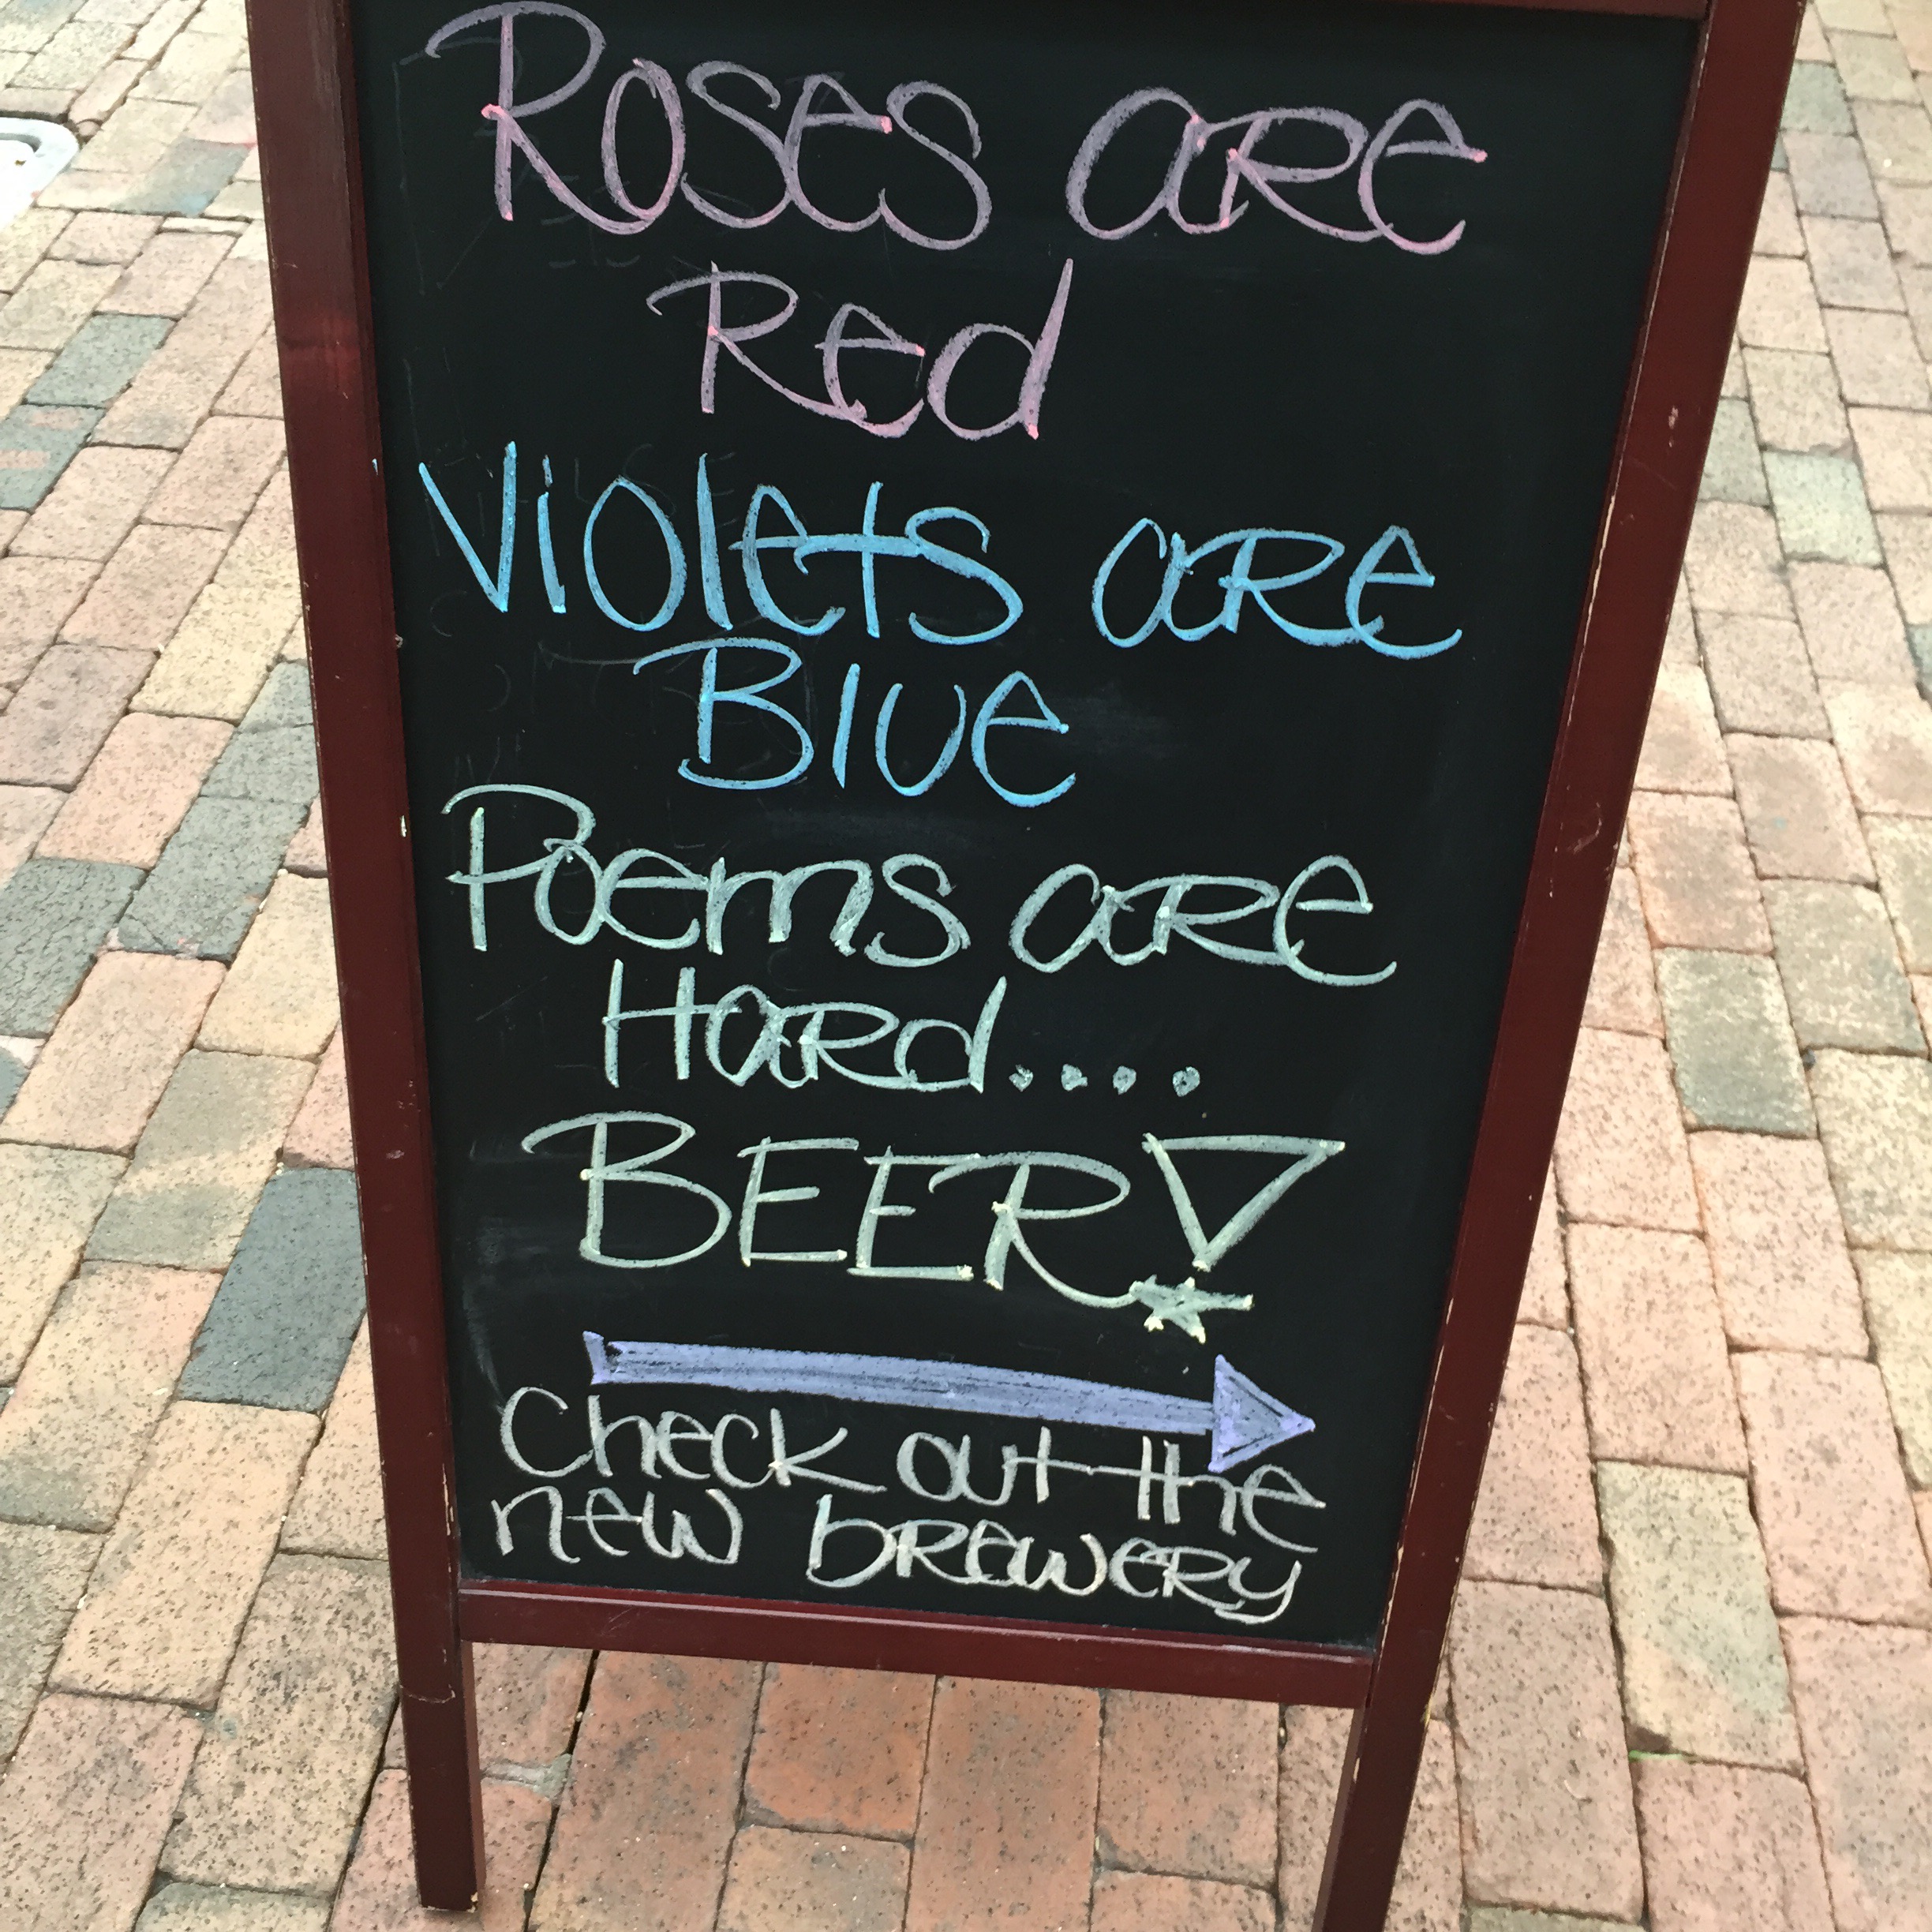 Roses are
Red
Violets are
Blue
Poems are
Hard....
BEER!
Check out the
new brewery